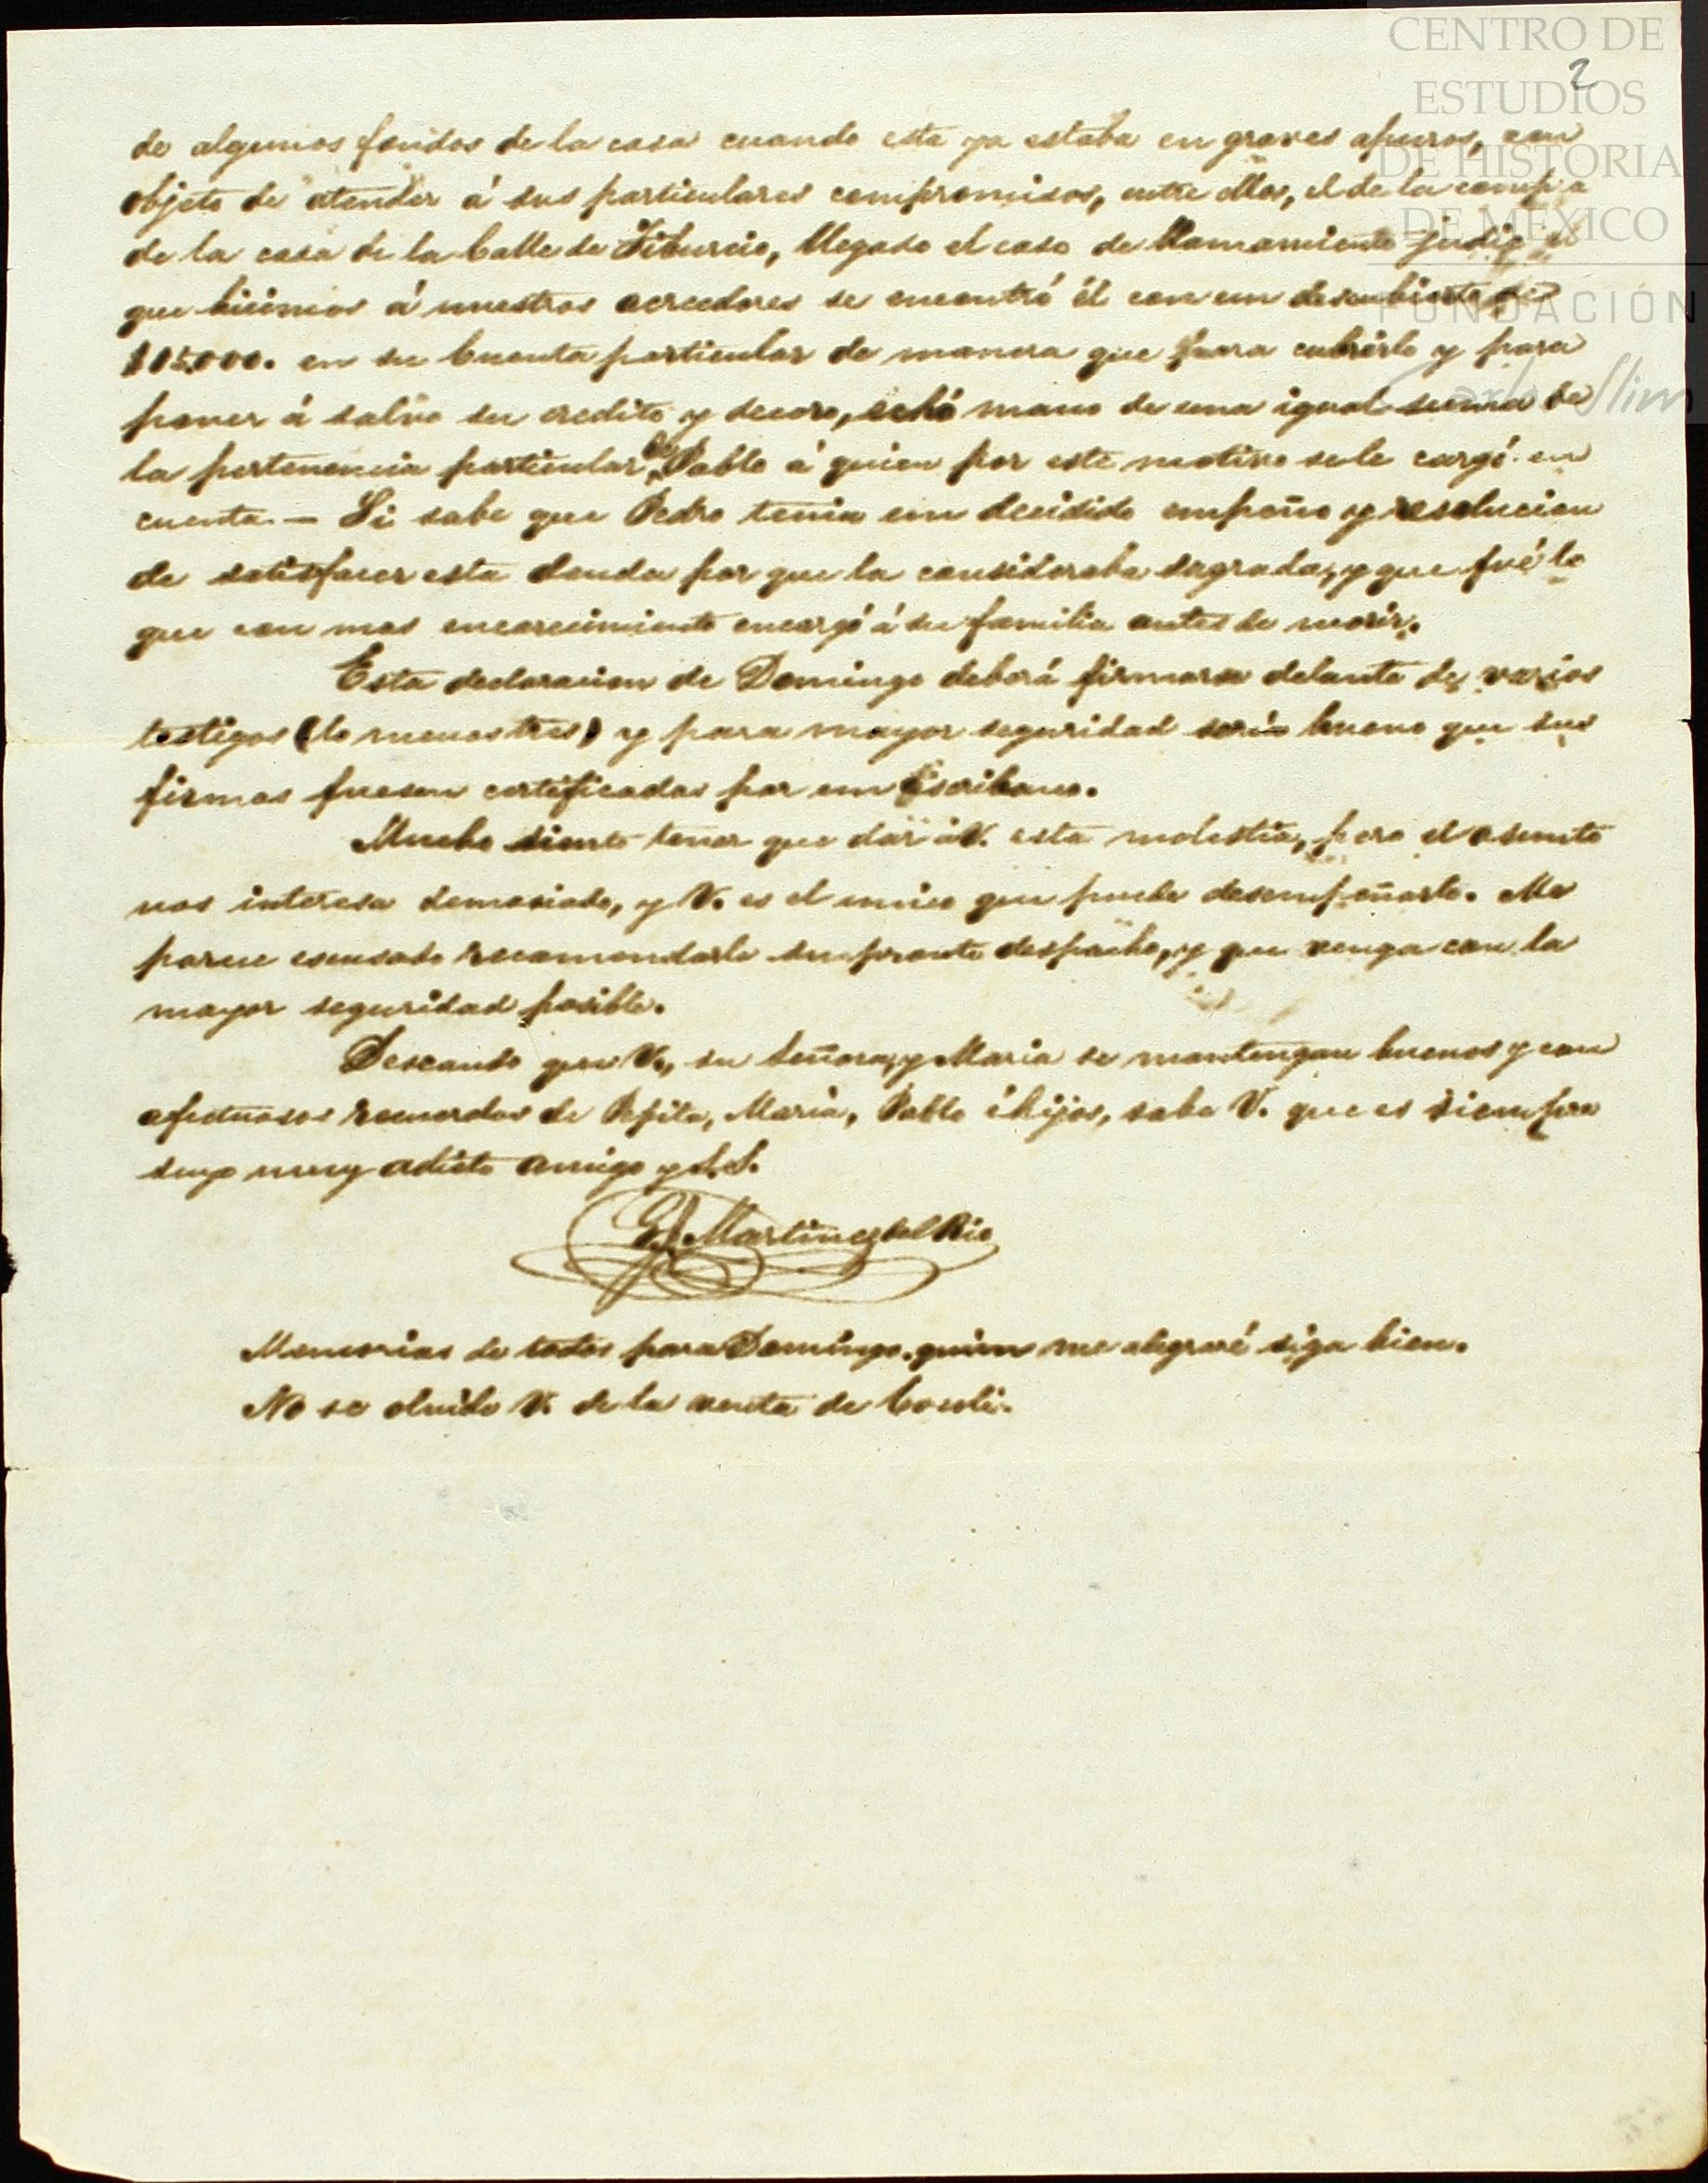 CENTRO DE
ESTUDIOS
DE HISTORIA
DE MÉXICO
FUNDACIÓN
Carlos Slim
2
de algunos fondos de la casa cuando esta ya estaba en graves apuros, con
objeto de atender á sus particulares compromisos, entre ellos, el de la compra
de la casa de la Calle de Tiburcio, llegado el caso de llamamiento judicial
que hicimos á nuestros acreedores se encontró él con un descubierto de
en su Cuenta particular de manera que para cubrirlo y para
poner á salvo su credito y decoro, echó mano de una igual suma de
la pertenencia particular de Pablo á quien por este motivo se le cargó en
cuenta. — Si sabe que Pedro tenia un decidido empeño y resolucion
de satisfacer esta deuda por que la consideraba sagrada, y que fué lo
que con mas encarecimiento encargó á su familia antes de morir.
Esta declaracion de Domingo deberá firmarse delante de varios
testigos (lo menos tres) y para mayor seguridad seria bueno que sus
firmas fuesen certificadas por un Escribano.
Mucho siento tener que dar á V. esta molestia, pero el asunto
nos interesa demasiado, y V. es el unico que puede desempeñarlo. Me
parece escusado recomendarle su pronto despacho, y que venga con la
mayor seguridad posible.
Deseando que V., su Señora, y Maria se mantengan buenos y con
afectuosos recuerdos de Pepita, Maria, Pablo é hijos, sabe V. que es siempre
suyo muy adicto amigo y S.S.
G. Martinez del Rio
Memorias de todos para Domingo, quien me alegraré siga bien.
No se olvide V. de la venta de Cocoli.